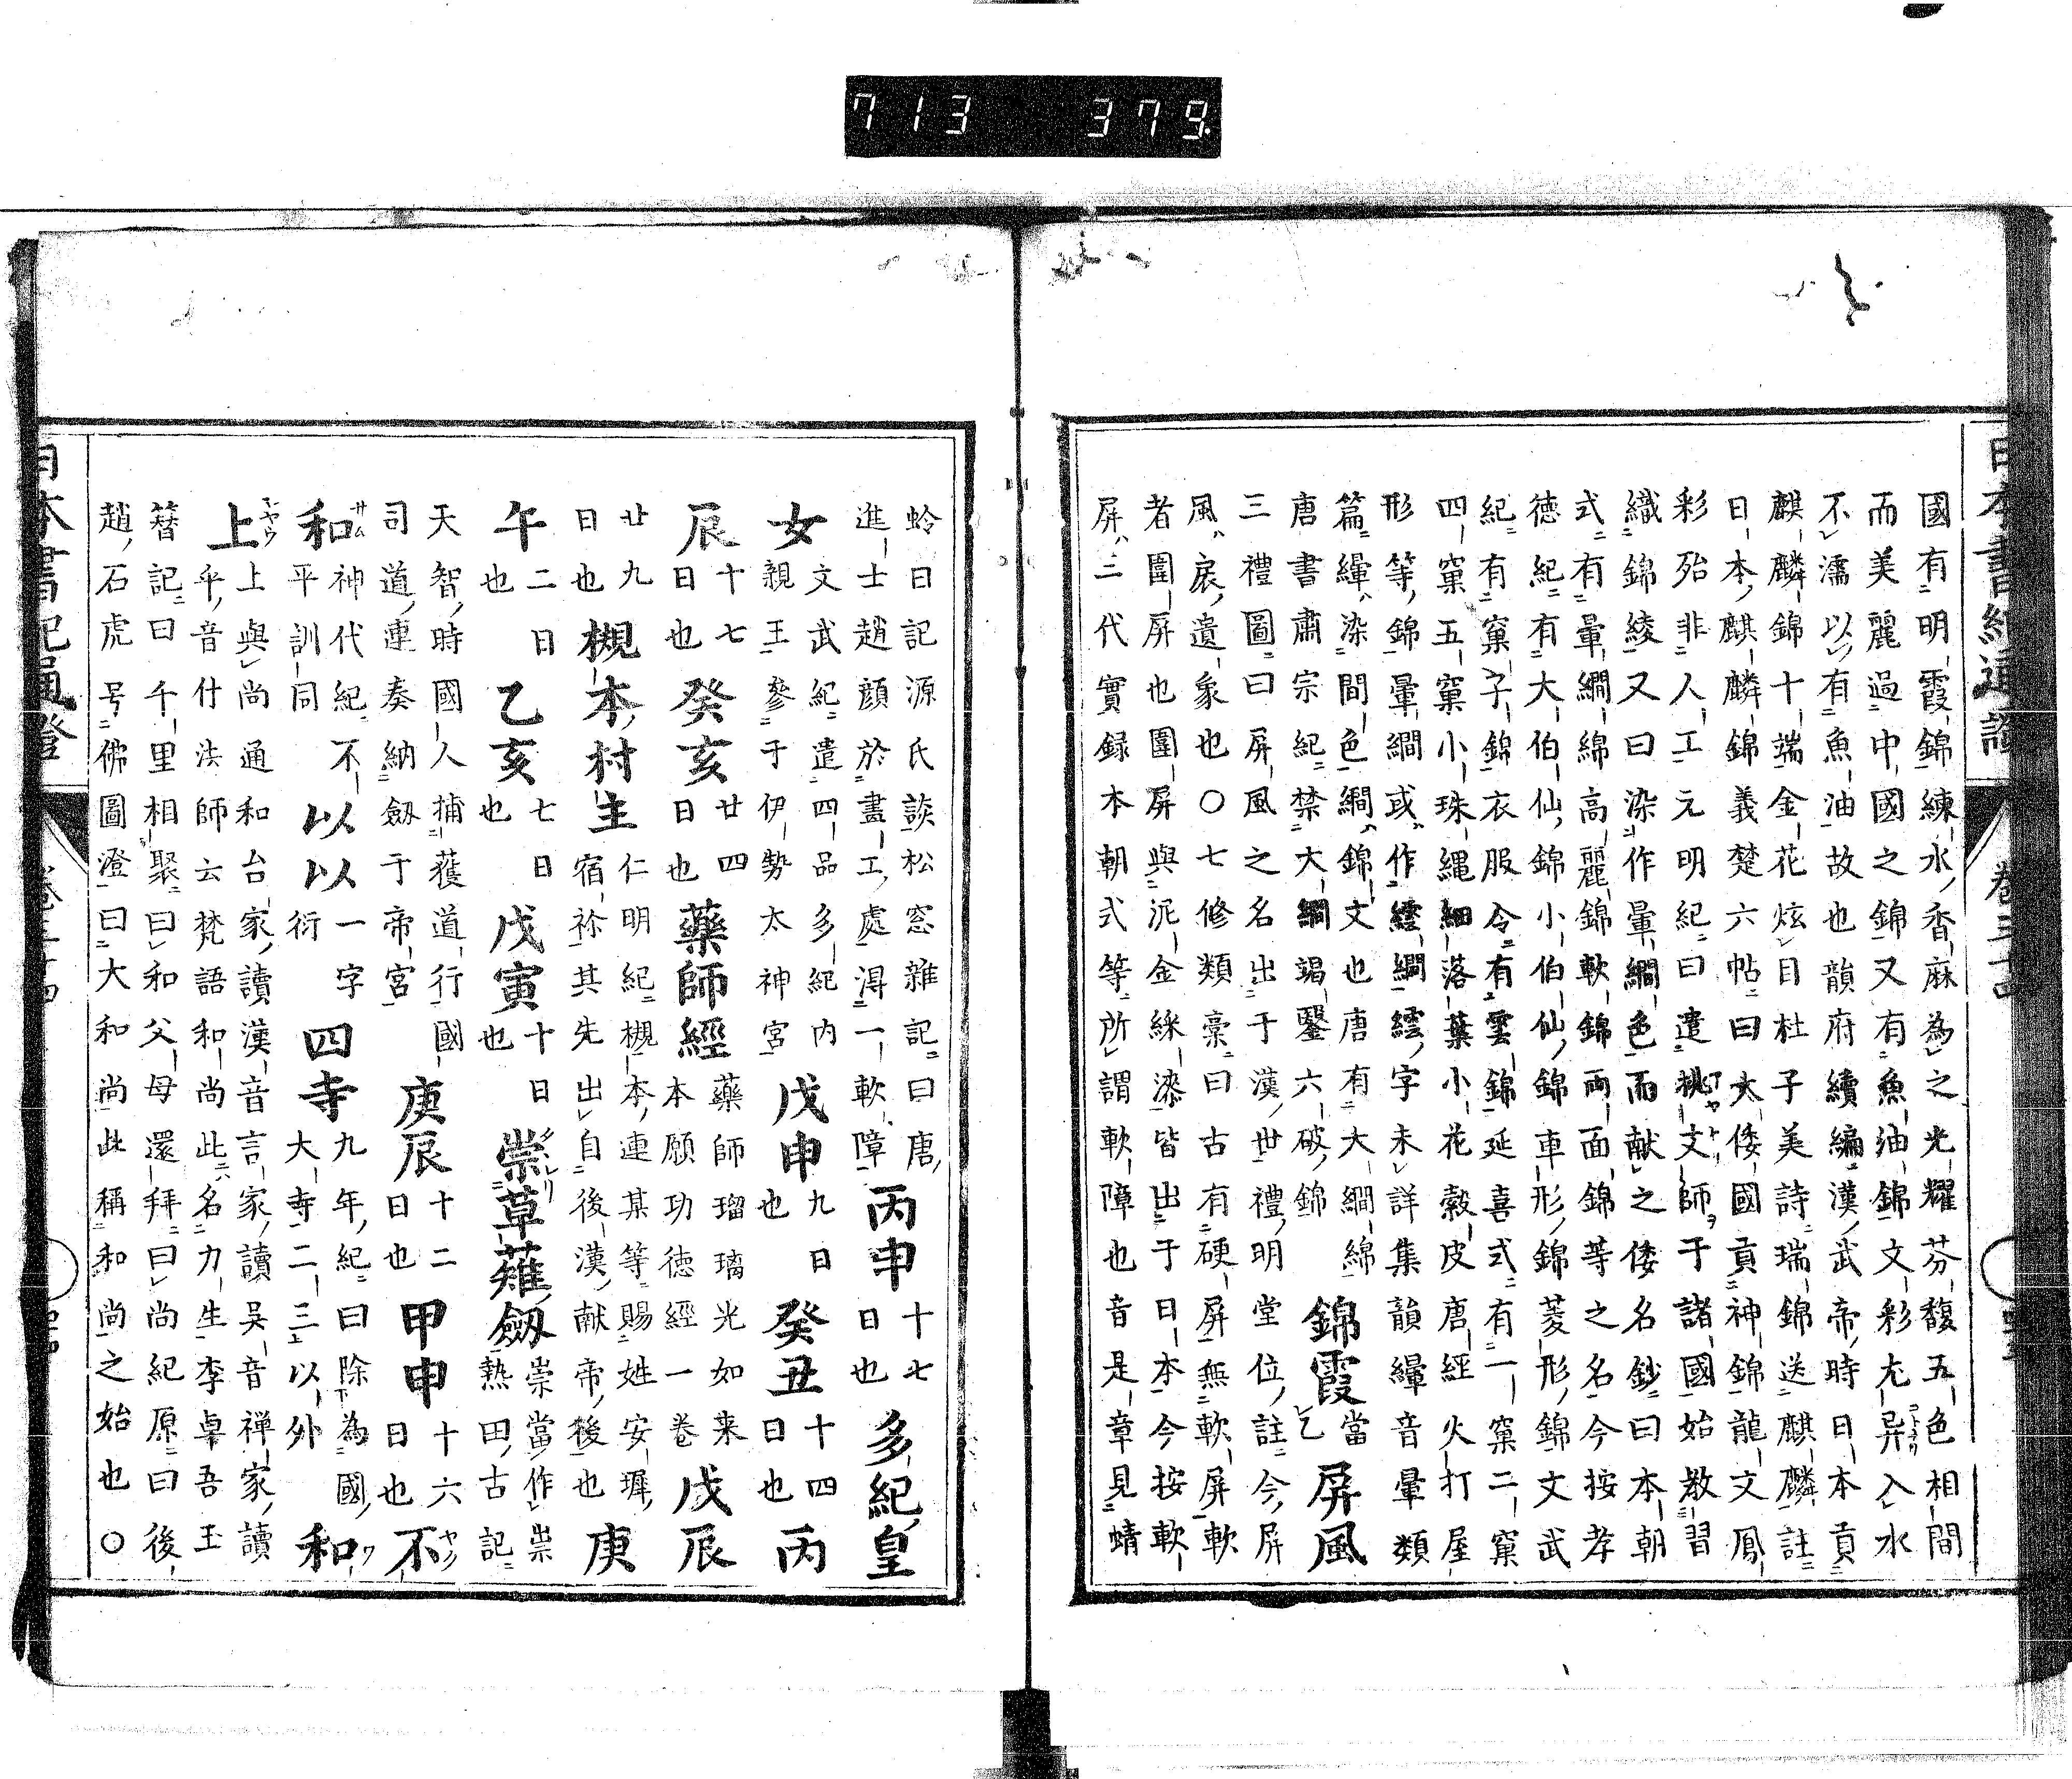 713 379
日本書紀通證
卷三十四
國有明霞錦練水香麻為之光耀芬馥五色相間
而美麗過中國之錦又有魚油錦文彩尤异入水
不濡以有魚油故也韻府續編漢武帝時日本貢
麒麟錦十端金花炫目杜子美詩瑞錦送麒麟註
日本麒麟錦義楚六帖曰大倭國貢神錦龍文鳳
彩殆非人工元明紀曰遣挑文師于諸國始教習
織錦綾又曰染作暈繝色而献之倭名鈔曰本朝
式有暈繝綿高麗錦軟錦兩面錦等之名今按孝
德紀有大伯仙錦小伯仙錦車形錦菱形錦文武
紀有窠子錦衣服令有雲錦延喜式有一窠二窠
四窠五窠小珠縄細落葉小花縠皮唐經火打屋
形等錦暈繝或作繧繝繧字未詳集韻繟音暈類
篇繟染間色繝錦文也唐有大繝綿
唐書肅宗紀禁大繝竭鑿六破錦
錦霞
當乙
屏風
三禮圖曰屏風之名出于漢世禮明堂位註今屏
風扆遺象也○七修類稾曰古有硬屏無軟屏軟
者圍屏也圍屏與泥金綵漆皆出于日本今按軟
屏三代實録本朝式等所謂軟障也音是章見蜻
蛉日記源氏談松窓雜記曰唐
進士趙顔於畫工處淂一軟障
丙申
十七日也
多紀皇
女
文武紀遣四品多紀内
親王參于伊勢太神宮
戊申
九日也
癸丑
十四日也
丙
辰
十七日也
癸亥
廿四日也
藥師經
藥師瑠璃光如来
本願功德經一卷
戊辰
廿九日也
槻本村主
仁明紀槻本連某等賜姓安墀
宿祢其先出自後漢献帝後也
庚
午
二日也
乙亥
七日也
戊寅
十日也
崇草薙劔
崇當作祟
熱田古記
天智時國人捕獲道行國
司道連奏納劔于帝宮
庚辰
十二日也
甲申
十六日也
不
和
神代紀不
平訓同
以以
一字衍
四寺
九年紀曰除為國
大寺二三以外
和
上
上與尚通和台家讀漢音言家讀吳音禅家讀
乎音付法師云梵語和尚此名力生李卓吾玉
簪記曰千里相聚曰和父母還拜曰尚紀原曰後
趙石虎号佛圖澄曰大和尚此稱和尚之始也○
日本書紀通證